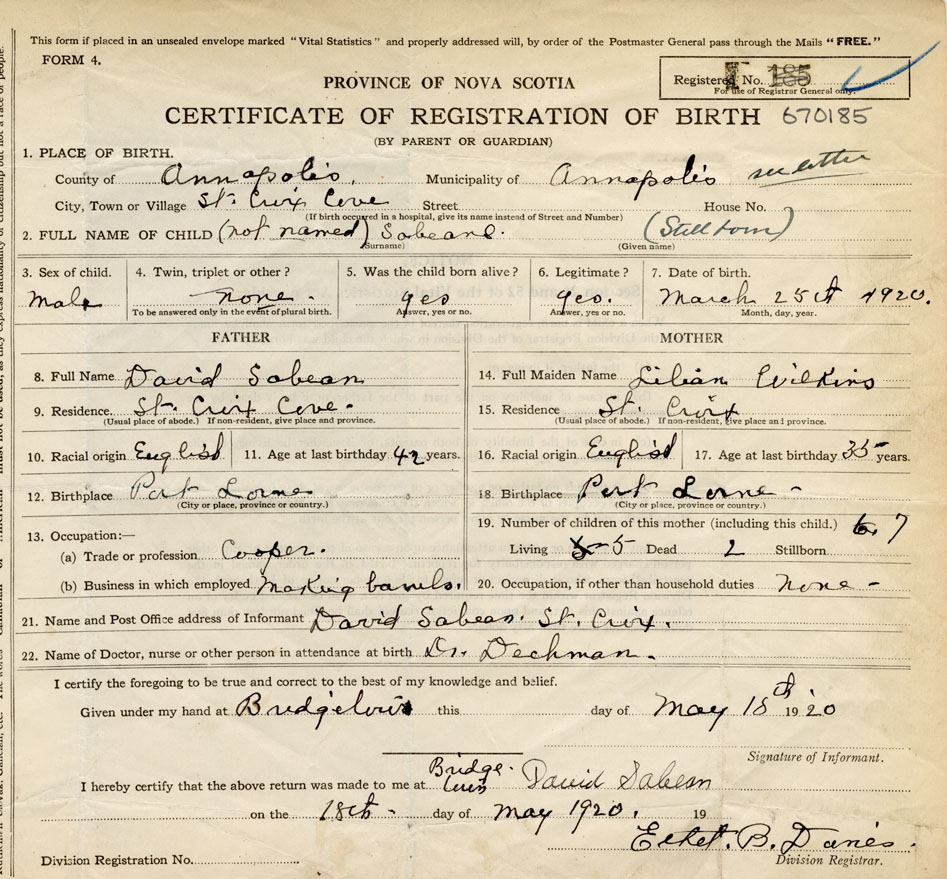 This form if placed in an unsealed envelope marked "Vital Statistics" and properly addressed will, by order of the Postmaster General pass through the Mails "FREE."
FORM 4.
Registered No. 185
For use of Registrar General only.
PROVINCE OF NOVA SCOTIA
CERTIFICATE OF REGISTRATION OF BIRTH 670185
(BY PARENT OR GUARDIAN)
1. PLACE OF BIRTH.
County of Annapolis, Municipality of Annapolis see letter
City, Town or Village St. Croix Cove Street House No.
(If birth occurred in a hospital, give its name instead of Street and Number)
2. FULL NAME OF CHILD (not named) Sabeans. (Stillborn)
(Surname) (Given name)
3. Sex of child. 4. Twin, triplet or other? 5. Was the child born alive? 6. Legitimate? 7. Date of birth.
Male none. yes yes. March 25th 1920.
To be answered only in the event of plural birth. Answer, yes or no. Answer, yes or no. Month, day, year.
FATHER
8. Full Name David Sabean
9. Residence St. Croix Cove-
(Usual place of abode.) If non-resident, give place and province.
10. Racial origin English 11. Age at last birthday 42 years.
12. Birthplace Port Lorne
(City or place, province or country.)
13. Occupation:—
(a) Trade or profession Cooper.
(b) Business in which employed Making barrels.
MOTHER
14. Full Maiden Name Lilian Wilkins
15. Residence St. Croix
(Usual place of abode.) If non-resident, give place and province.
16. Racial origin English 17. Age at last birthday 35 years.
18. Birthplace Port Lorne -
(City or place, province or country.)
19. Number of children of this mother (including this child.) 6, 7
Living 5 Dead 2 Stillborn
20. Occupation, if other than household duties none -
21. Name and Post Office address of Informant David Sabean. St. Croix.
22. Name of Doctor, nurse or other person in attendance at birth Dr. Dechman.
I certify the foregoing to be true and correct to the best of my knowledge and belief.
Given under my hand at Bridgetown this day of May 18th 1920
Signature of Informant.
I hereby certify that the above return was made to me at Bridge- town David Sabean
on the 18th - day of May 1920. 19
Ethel. B. Davies.
Division Registration No. Division Registrar.